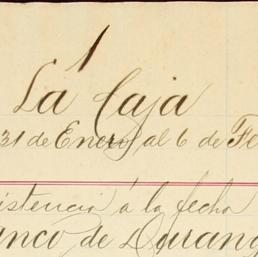 1
La Caja
31 de Enero al 6 de Fe
istencia á la fecha
anco de Durang